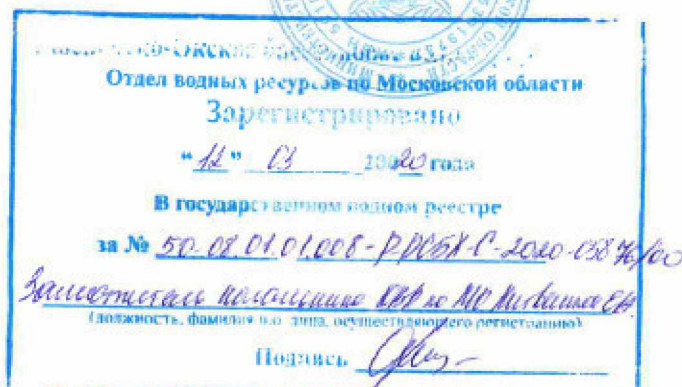 Отдел водных ресурсов по Московской области
Зарегистрировано
"12" 03 2020 года
В государственном водном реестре
за № 50-08.01.01.008-Р-РСБХ-С-2020-05876/00
Заместитель начальника ОВР по МО
(должность, фамилия и.о. лица, осуществляющего регистрацию)
Подпись